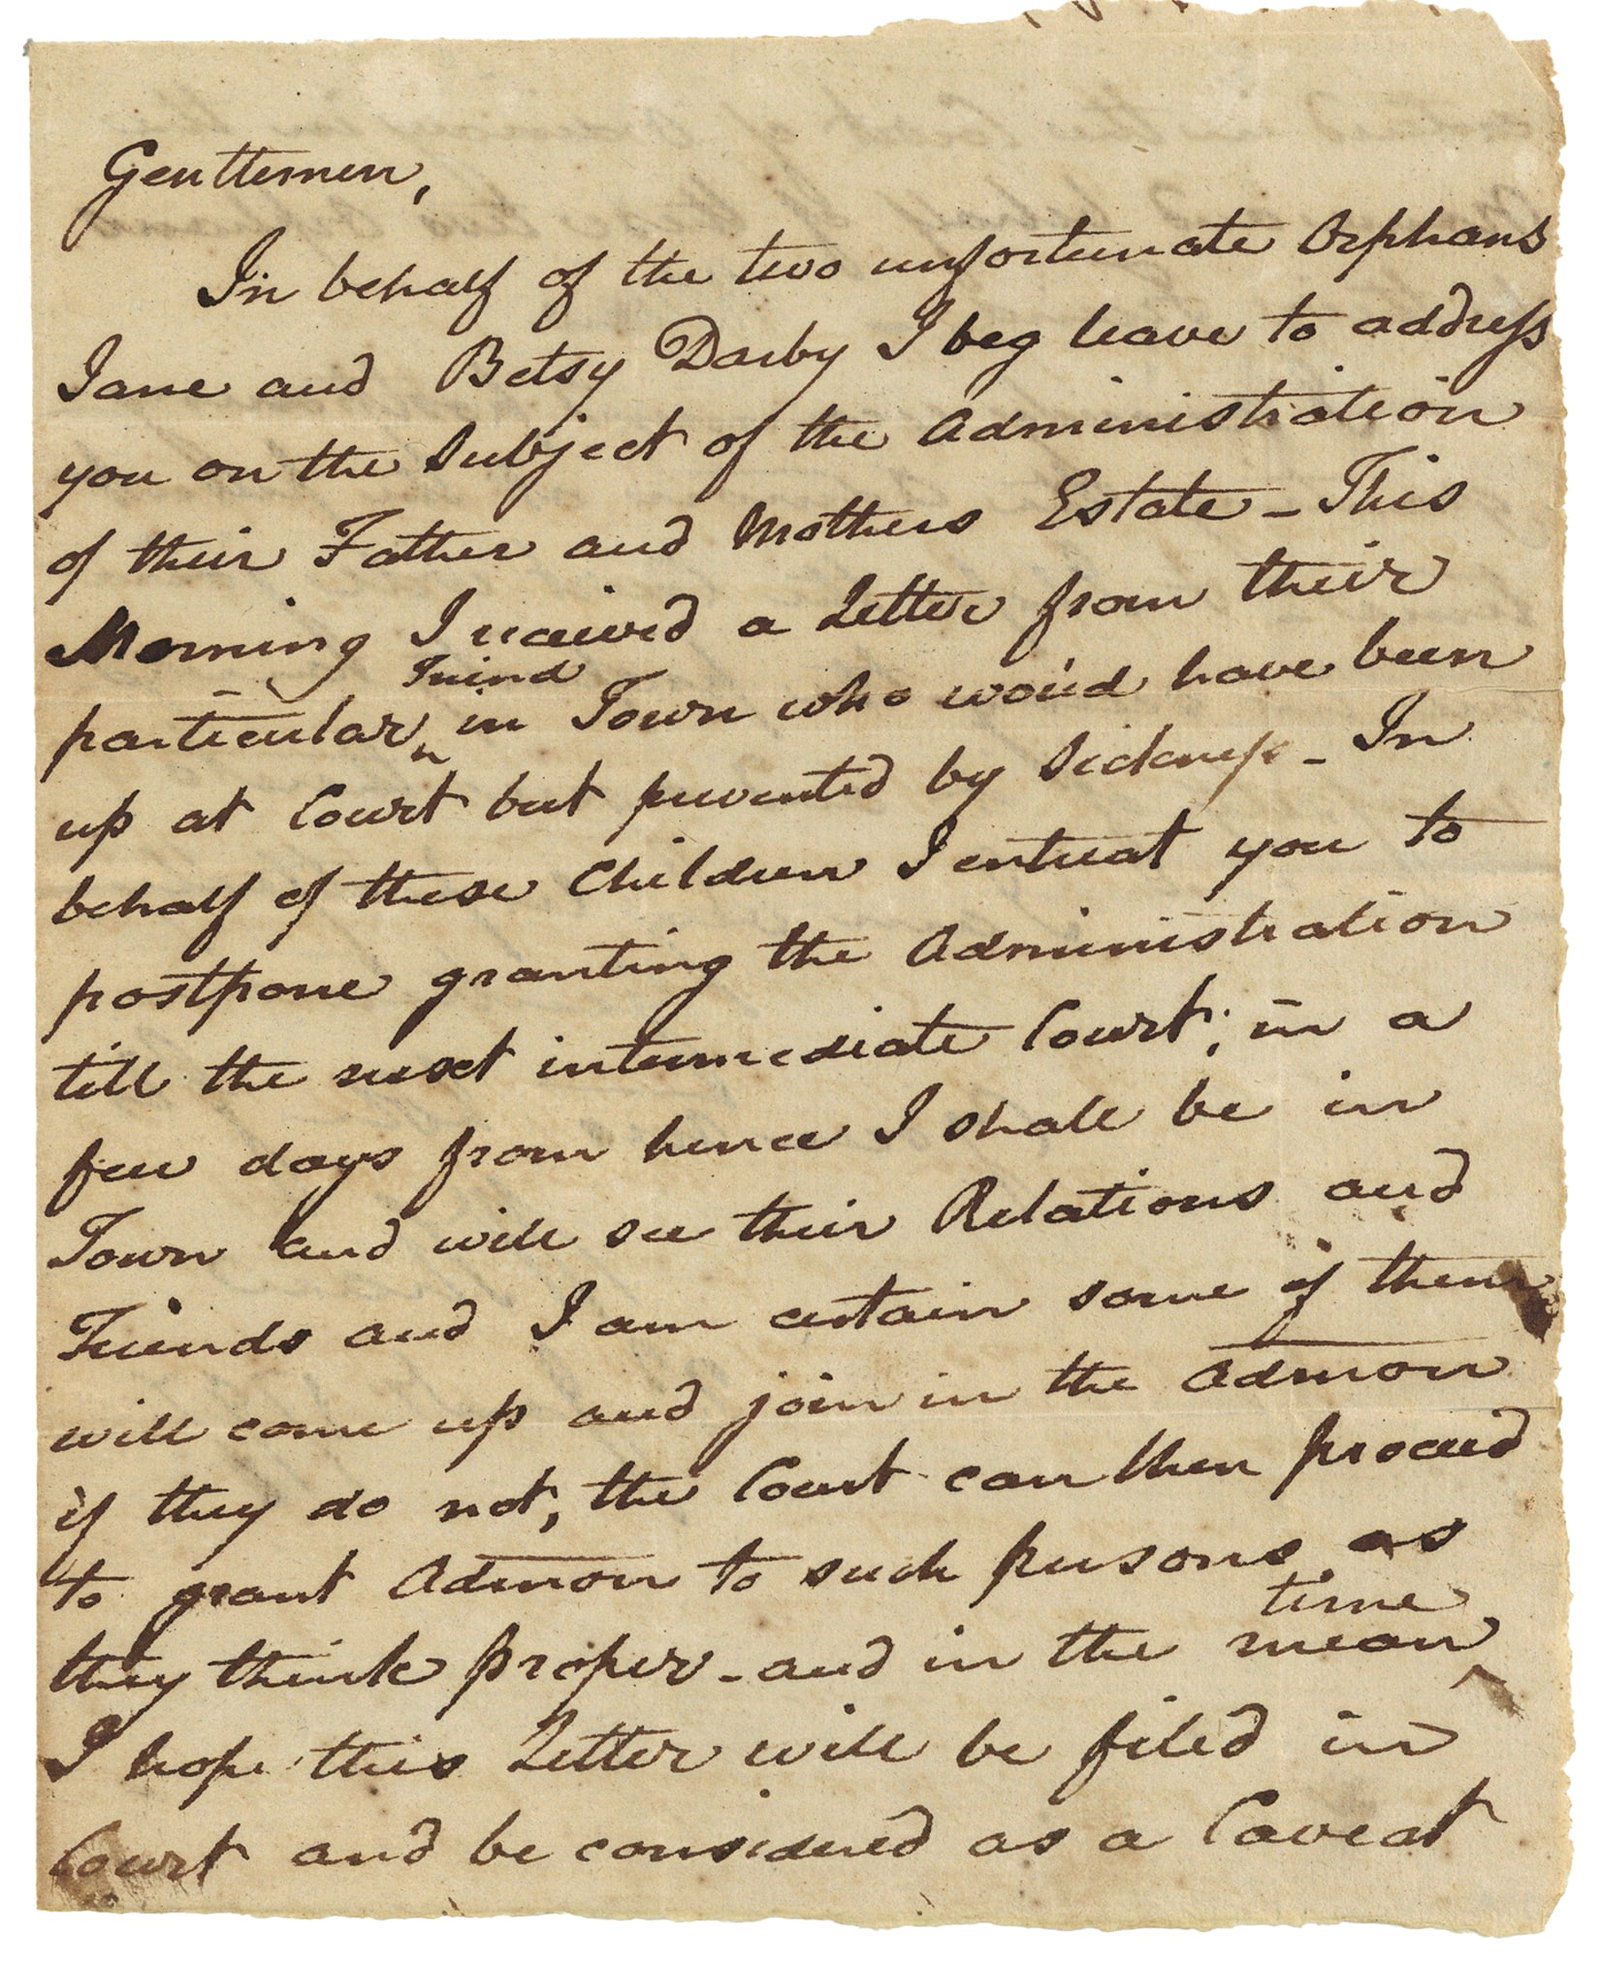 Gentlemen,
In behalf of the two unfortunate Orphans
Jane and Betsy Darby I beg leave to address
you on the Subject of the Administration
of their Father and Mothers Estate - This
Morning I received a Letter from their
Friend
particular in Town who wou'd have been
up at Court but prevented by Sickness - In
behalf of these Children I entreat you to
postpone granting the Administration
till the next intermediate Court; in a
few days from hence I shall be in
Town and will see their Relations and
Friends and I am certain some of them
will come up and join in the Admon
if they do not, the Court can then proceed
to grant Admon to such persons as
time
they think proper - and in the mean
I hope this Letter will be filed in
Court and be considered as a Caveat